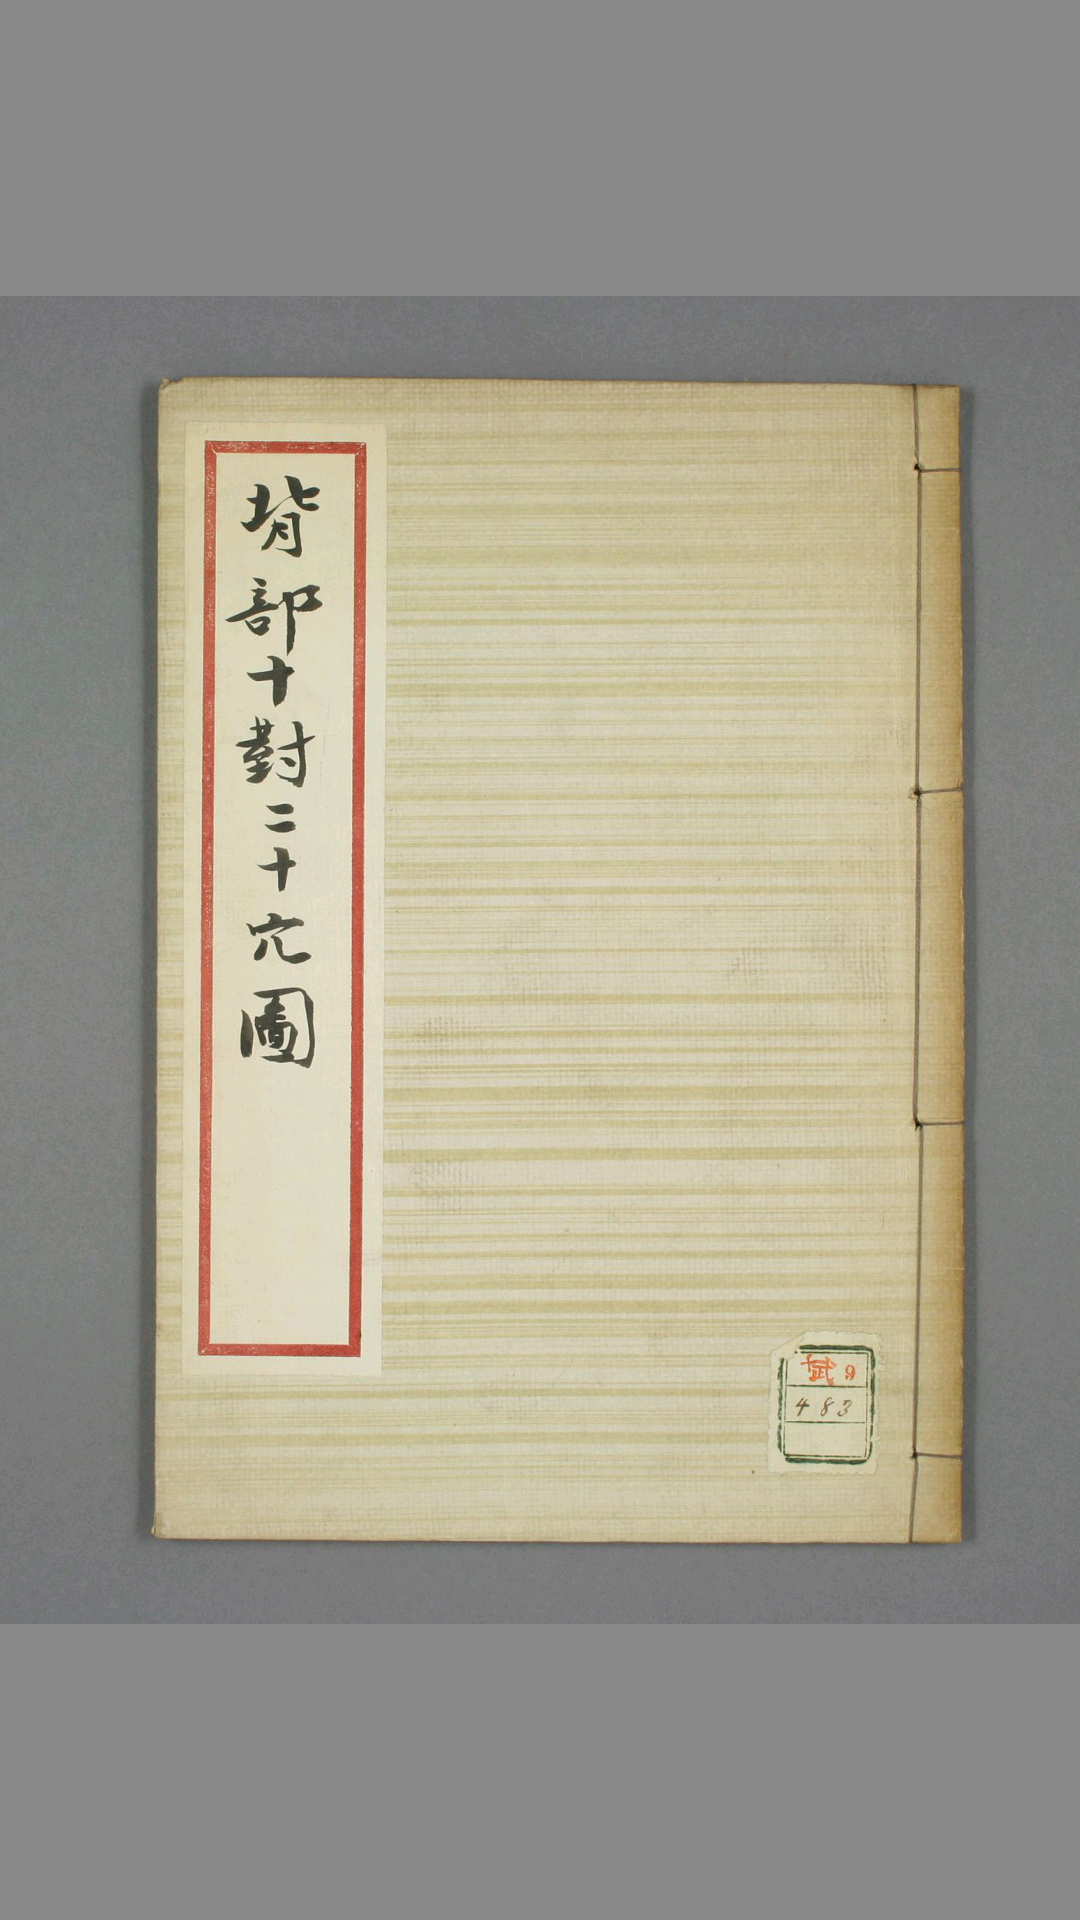 背部十對二十穴圖
武 9
483